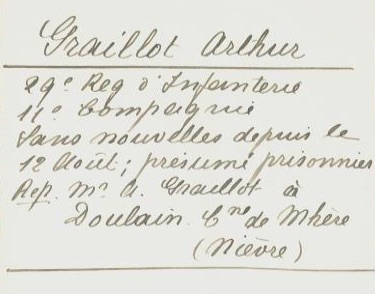 Graillot Arthur
29e Reg d'Infanterie
11e Compagnie
Sans nouvelles depuis le
12 Août; présumé prisonnier
Rep. Mr A. Graillot à
Doulain Cne de Mhère
(Nièvre)